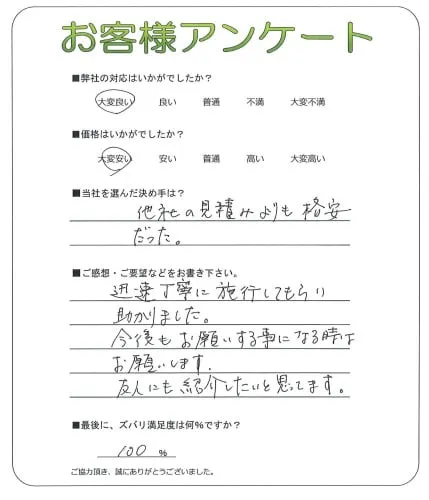 お客様アンケート
■弊社の対応はいかがでしたか?
大変良い 良い 普通 不満 大変不満
■価格はいかがでしたか?
大変安い 安い 普通 高い 大変高い
■当社を選んだ決め手は?
他社の見積みよりも格安
だった。
■ご感想・ご要望などをお書き下さい。
迅速丁寧に施行してもらい
助かりました。
今後もお願いする事になる時は
お願いします.
友人にも紹介したいと思ってます。
■最後に、ズバリ満足度は何%ですか?
100 %
ご協力頂き、誠にありがとうございました。